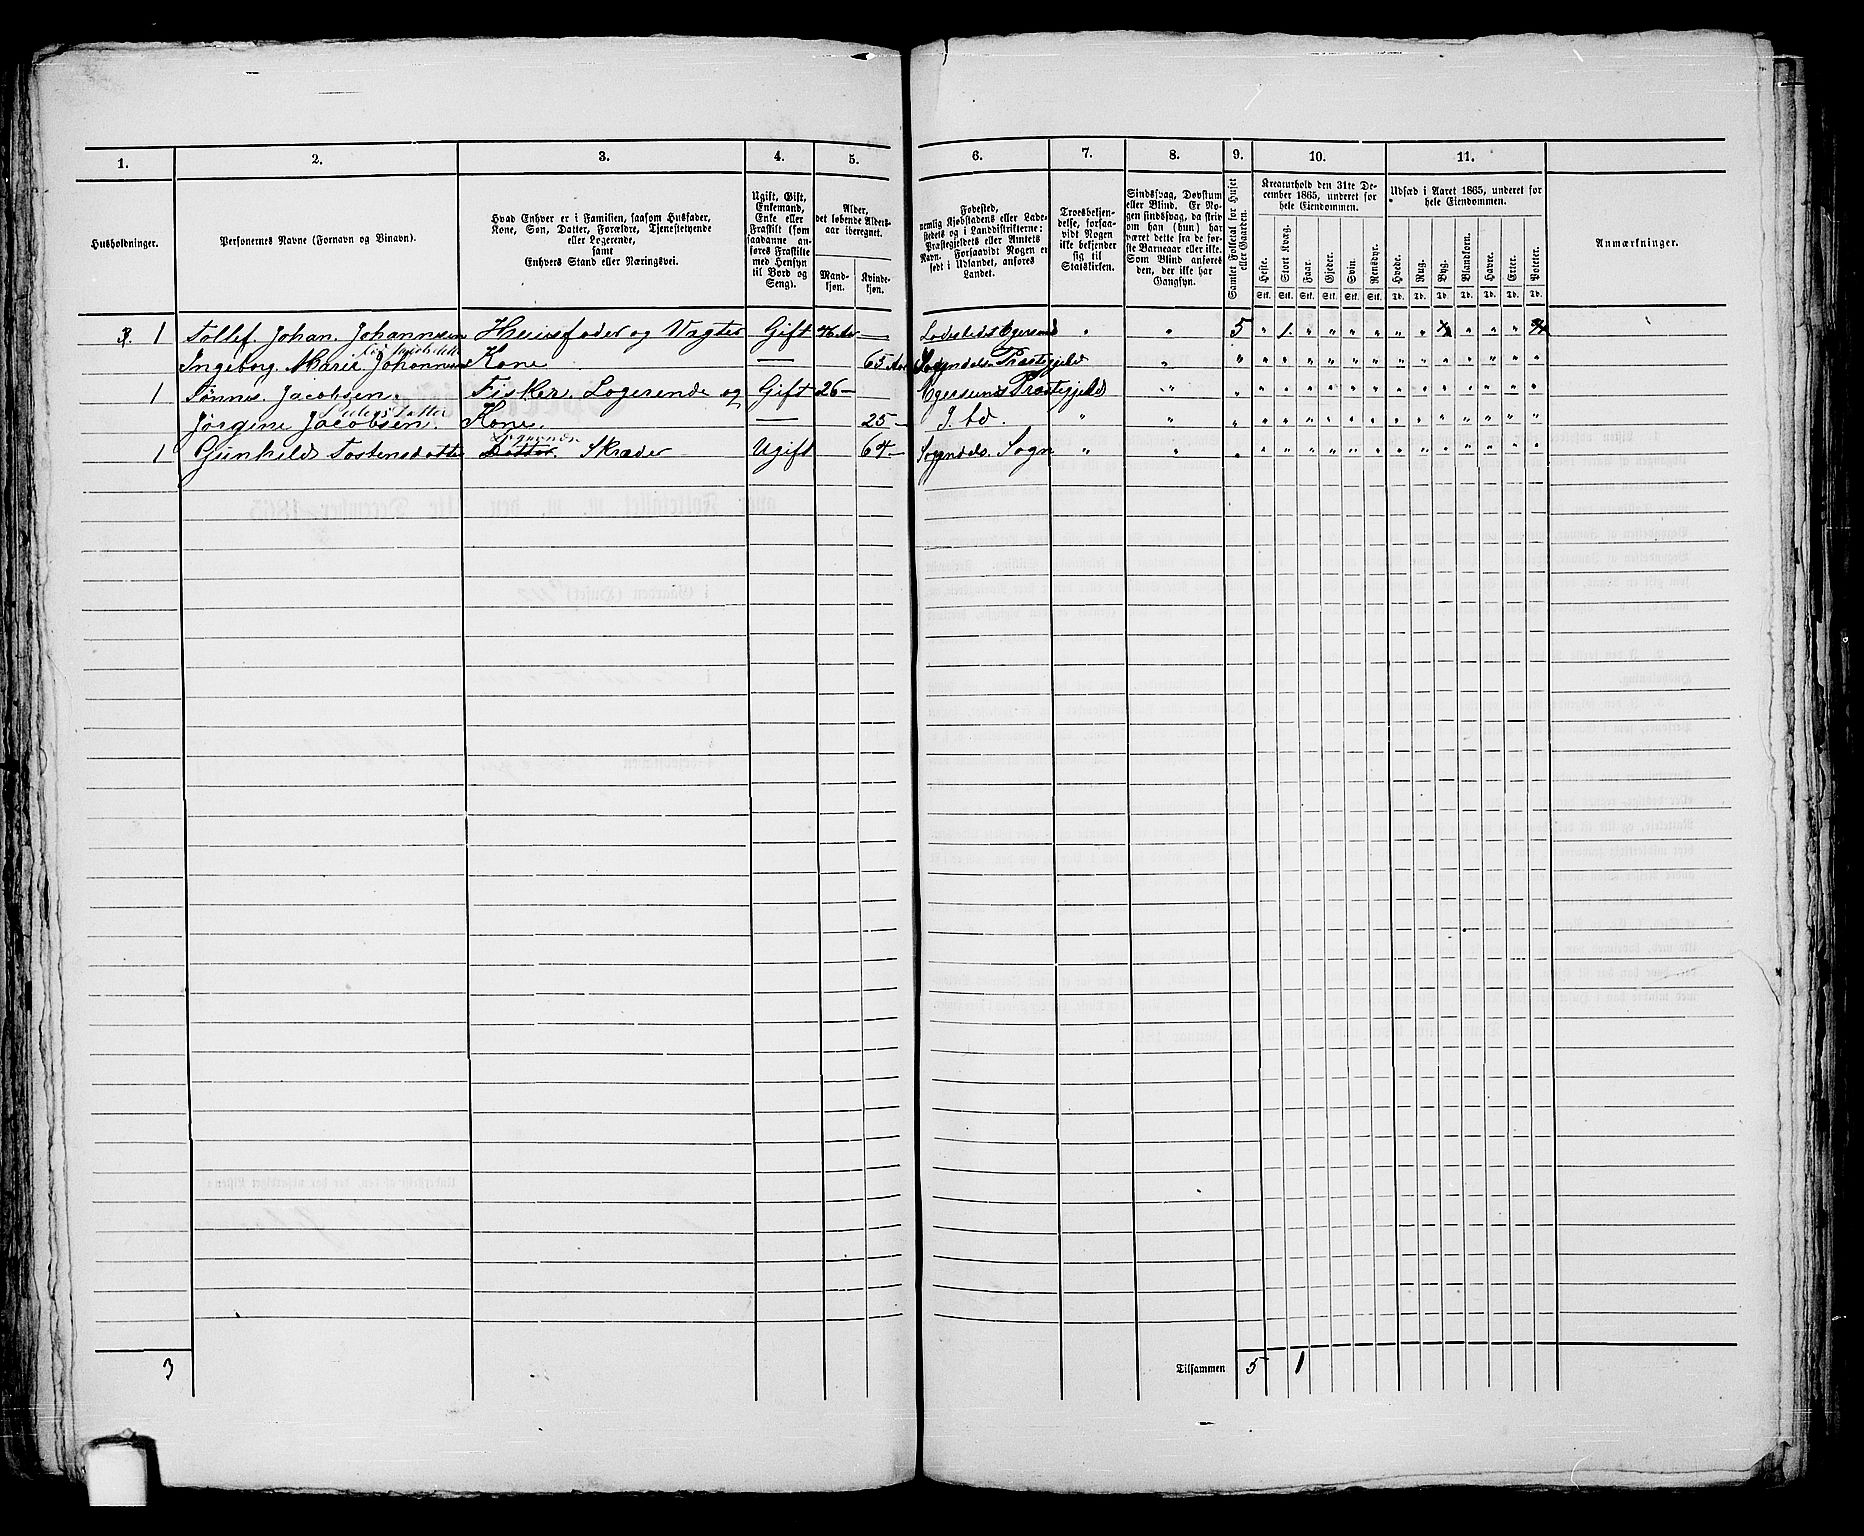 1. 2. 3. 4. 5. 6. 7. 8. 9. 10. 11.
Husholdninger.
Personernes Navne (Fornavn og Binavn).
Hvad Enhver er i Familien, saasom Husfader,
Kone, Søn, Datter, Forældre, Tjenestetyende
eller Logerende,
samt
Enhvers Stand eller Næringsvei.
Ugift, Gift,
Enkemand,
Enke eller
Fraskilt (som
saadanne an-
føres Fraskilte
med Hensyn
til Bord og
Seng).
Alder,
det løbende Alders-
aar iberegnet.
Mand-
kjøn.
Kvinde-
kjøn.
Fødested,
nemlig Kjøbstadens eller Lade-
stedets og i Landdistrikterne:
Præstegjeldets eller Amtets
Navn. Forsaavidt Nogen er
født i Udlandet, anføres
Landet.
Troesbekjen-
delse, forsaa-
vidt Nogen
ikke bekjender
sig til
Statskirken.
Sindssvag, Døvstum
eller Blind. Er No-
gen sindssvag, da skriv
om han (hun) har
været dette fra de før-
ste Barneaar eller ikke.
Som Blind ansøres
den, der ikke har
Gangsyn.
Samlet Folketal for Huset
eller Gaarden.
Kreaturhold den 31te De-
cember 1865, underet for
hele Eiendommen.
Heste. Stort Kvæg. Faar. Gjeder. Svin. Rensdyr.
Stk. Stk. Stk. Stk. Stk. Stk.
Udsæd i Aaret 1865, underet for
hele Eiendommen.
Hvede. Rug. Byg. Blandkorn. Havre. Erter. Poteter.
Td. Td. Td. Td. Td. Td. Td.
Anmærkninger.
1 Tollef Johan Johannsen Huusfader og Vægter Gift Ladested Egersund " " 5 " 1. " " " " " " " " " "
Ingeborg Marie Johannsen Kone — 65 Aar Sogndals Præstegjeld " " " " " " " " " " " " " " "
1 Tønnes Jacobsen. Fisker. Logerende og Gift 26 — Egersunds Præstegjeld " " " " " " " " " " " " " " "
Peders Datter
Jørgine Jacobsen. Kone. — 25 — " " " " " " " " " " " " " " " "
Logerende
1 Gunhild Tostensdatter Datter. Skræder Ugift 64 — Sogndals Sogn " " " " " " " " " " " " " " " "
3 Tilsammen 5 1